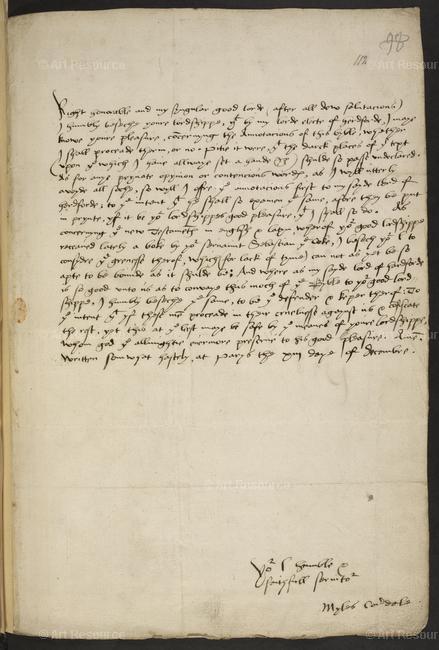 98
112
Right honorable and my syngular good lorde / after all dew salutacions /
I humbly beseche youre lordshippe, yt by my lorde electe of herdforde, I maye
knowe youre pleasure, concernyng the Annotacions of this byble, whether
I shall procede therin, or no. Pitie it were, yt the darck places of ye text
(vpon ye which I haue allwaye set a hande) shulde so passe vndeclared.
As for anye pryuate opynion or contencious wordes, as I wyll vtterly
avoyde all soch, so wyll I offre ye annotacions first to my sayde lord of
herdforde: to ye intent yt he shall so examen ye same, afore they be put
in prynte, yf it be yor lordshippes good pleasure, yt I shall so do. As
concernyng ye new Testamentes in english & latyn, wherof yor good lordshippe
receaued lately a boke by yor seruaunt Sebastian ye Coke, I besech yor l. to
considre ye grenesse therof, which (for lack of tyme) can not as yet be so
apte to be bounde as it shulde be: And where as my sayd lord of herdforde
is so good vnto us as to convaye this moch of ye Byble to yor good lord
shippe, I humbly beseche ye same, to be ye defender & keper therof: To
ye intent yt yf these men procede in their cruelnesse agaynst us & confiscate
the rest, yet this at ye lest maye be safe by ye meanes of youre lordshippe,
whom god ye allmightie euermore preserue to his good pleasure. Amen.
Written somwhat hastely, at Parys the xiij daye of decembre.
Yor l. humble &
faithfull seruitor
Myles Couerdale.
© Art Resource